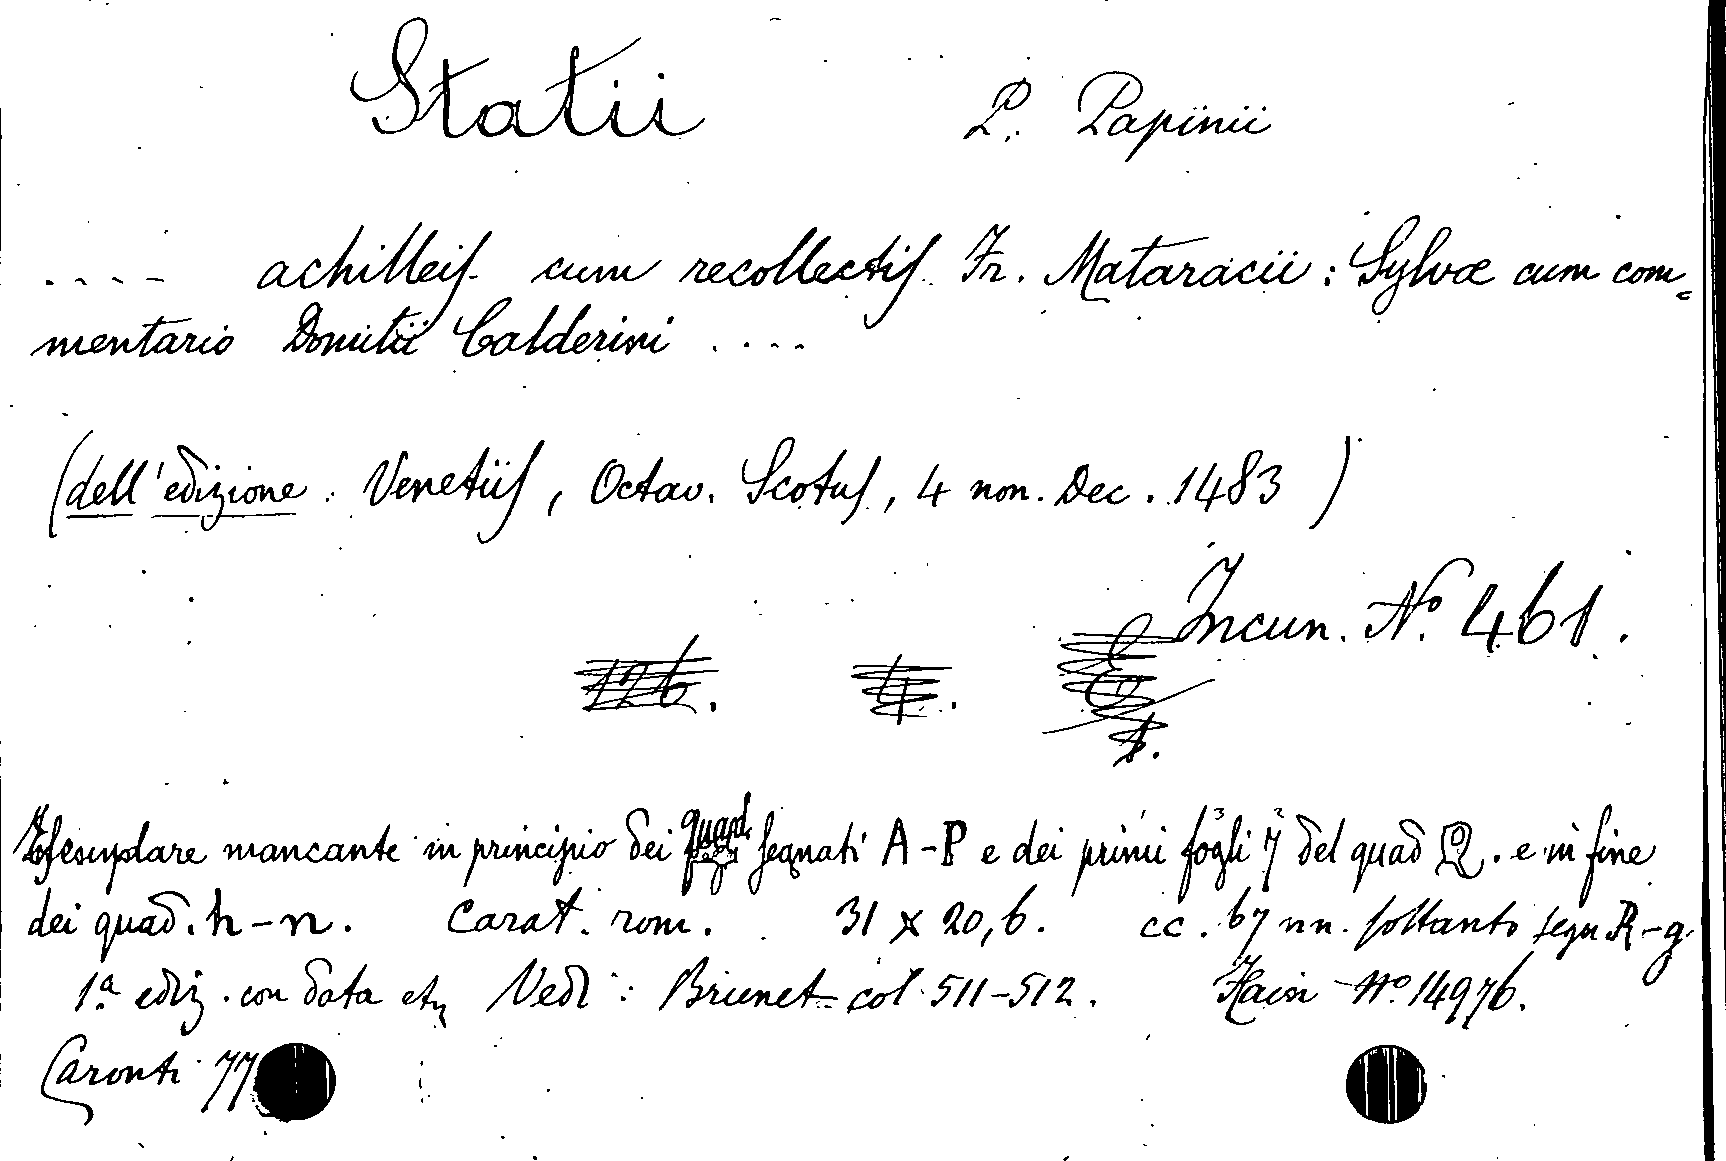 Statii P. Papinii
.... achilleis cum recollectis Fr. Mataracii: Sylvæ cum com=
mentario Domitii Calderini ....
(dell'edizione: Venetiis, Octav. Scotus, 4 non. Dec. 1483)
Incun. Nº 461.
126. 4.
1.
Esemplare mancante in principio dei quad. segnati A-P e dei primi fogli 7 del quad Q. e in fine
dei quad. h-n. Carat. rom. 31 x 20,6. cc. 67 nn. soltanto segn R-g.
1ª ediz. con data etc Vedi: Brunet col. 511-512. Hain Nº 14976.
Caronti 77